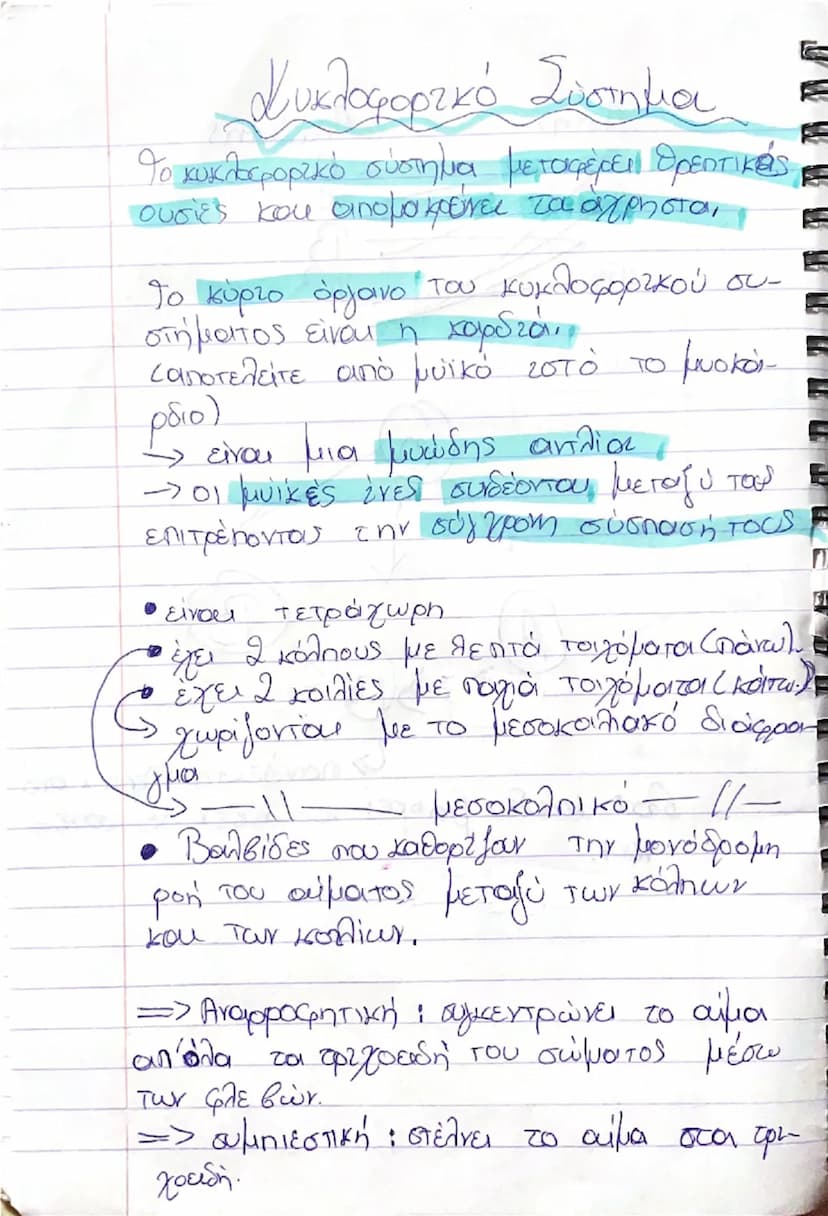 Κυκλοφορικό Σύστημα
Το κυκλοφορικό σύστημα μεταφέρει θρεπτικές
ουσίες και απομακρύνει τα άχρηστα.
Το κύριο όργανο του κυκλοφορικού συ-
στήματος είναι η καρδιά.
(αποτελείτε από μυϊκό ιστό το μυοκά-
ρδιο)
→ είναι μια μυώδης αντλία
→ οι μυϊκές ίνες συνδέονται μεταξύ τους
επιτρέποντας την σύγχρονη σύσπασή τους
• είναι τετράχωρη
• έχει 2 κόλπους με λεπτά τοιχόματα (πάνω).
• έχει 2 κοιλίες με παχιά τοιχόματα (κάτω.)
→ χωρίζονται με το μεσοκοιλιακό διάφρα-
γμα
→ —\\— μεσοκολπικό —//—
• Βαλβίδες που καθορίζουν την μονόδρομη
ροή του αίματος μεταξύ των κόλπων
και των κοιλίων.
=> Αναρροφητική : συγκεντρώνει το αίμα
απ'όλα τα τριχοειδή του σώματος μέσω
των φλεβών.
=> συμπιεστική : στέλνει το αίμα στα τρι-
χοειδή.